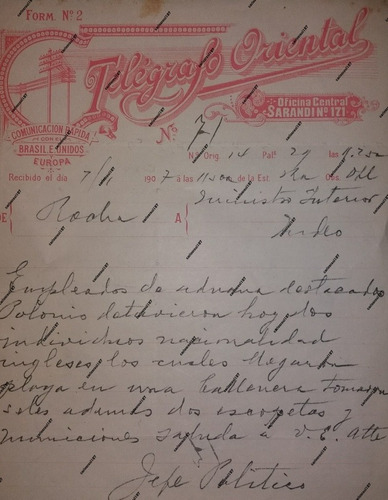 FORM. Nº 2
Telégrafo Oriental
Oficina Central
SARANDI Nº 171
COMUNICACION RAPIDA
CON EL
BRASIL, E. UNIDOS
Y
EUROPA
Nº 71
N. Orig. 14 Pal. 29 las 11.20a
Recibido el día 7/1 1907 á las 11.50a de la Est. Obs.
DE Rocha A Ministro Interior
Mdeo
Empleados de aduana destacados
Polonio detuvieron hoy dos
individuos nacionalidad
ingleses los cuales llegaron
playa en una ballenera tomaron
seles además dos escopetas y
municiones saluda á V. E. atte
Jefe Político